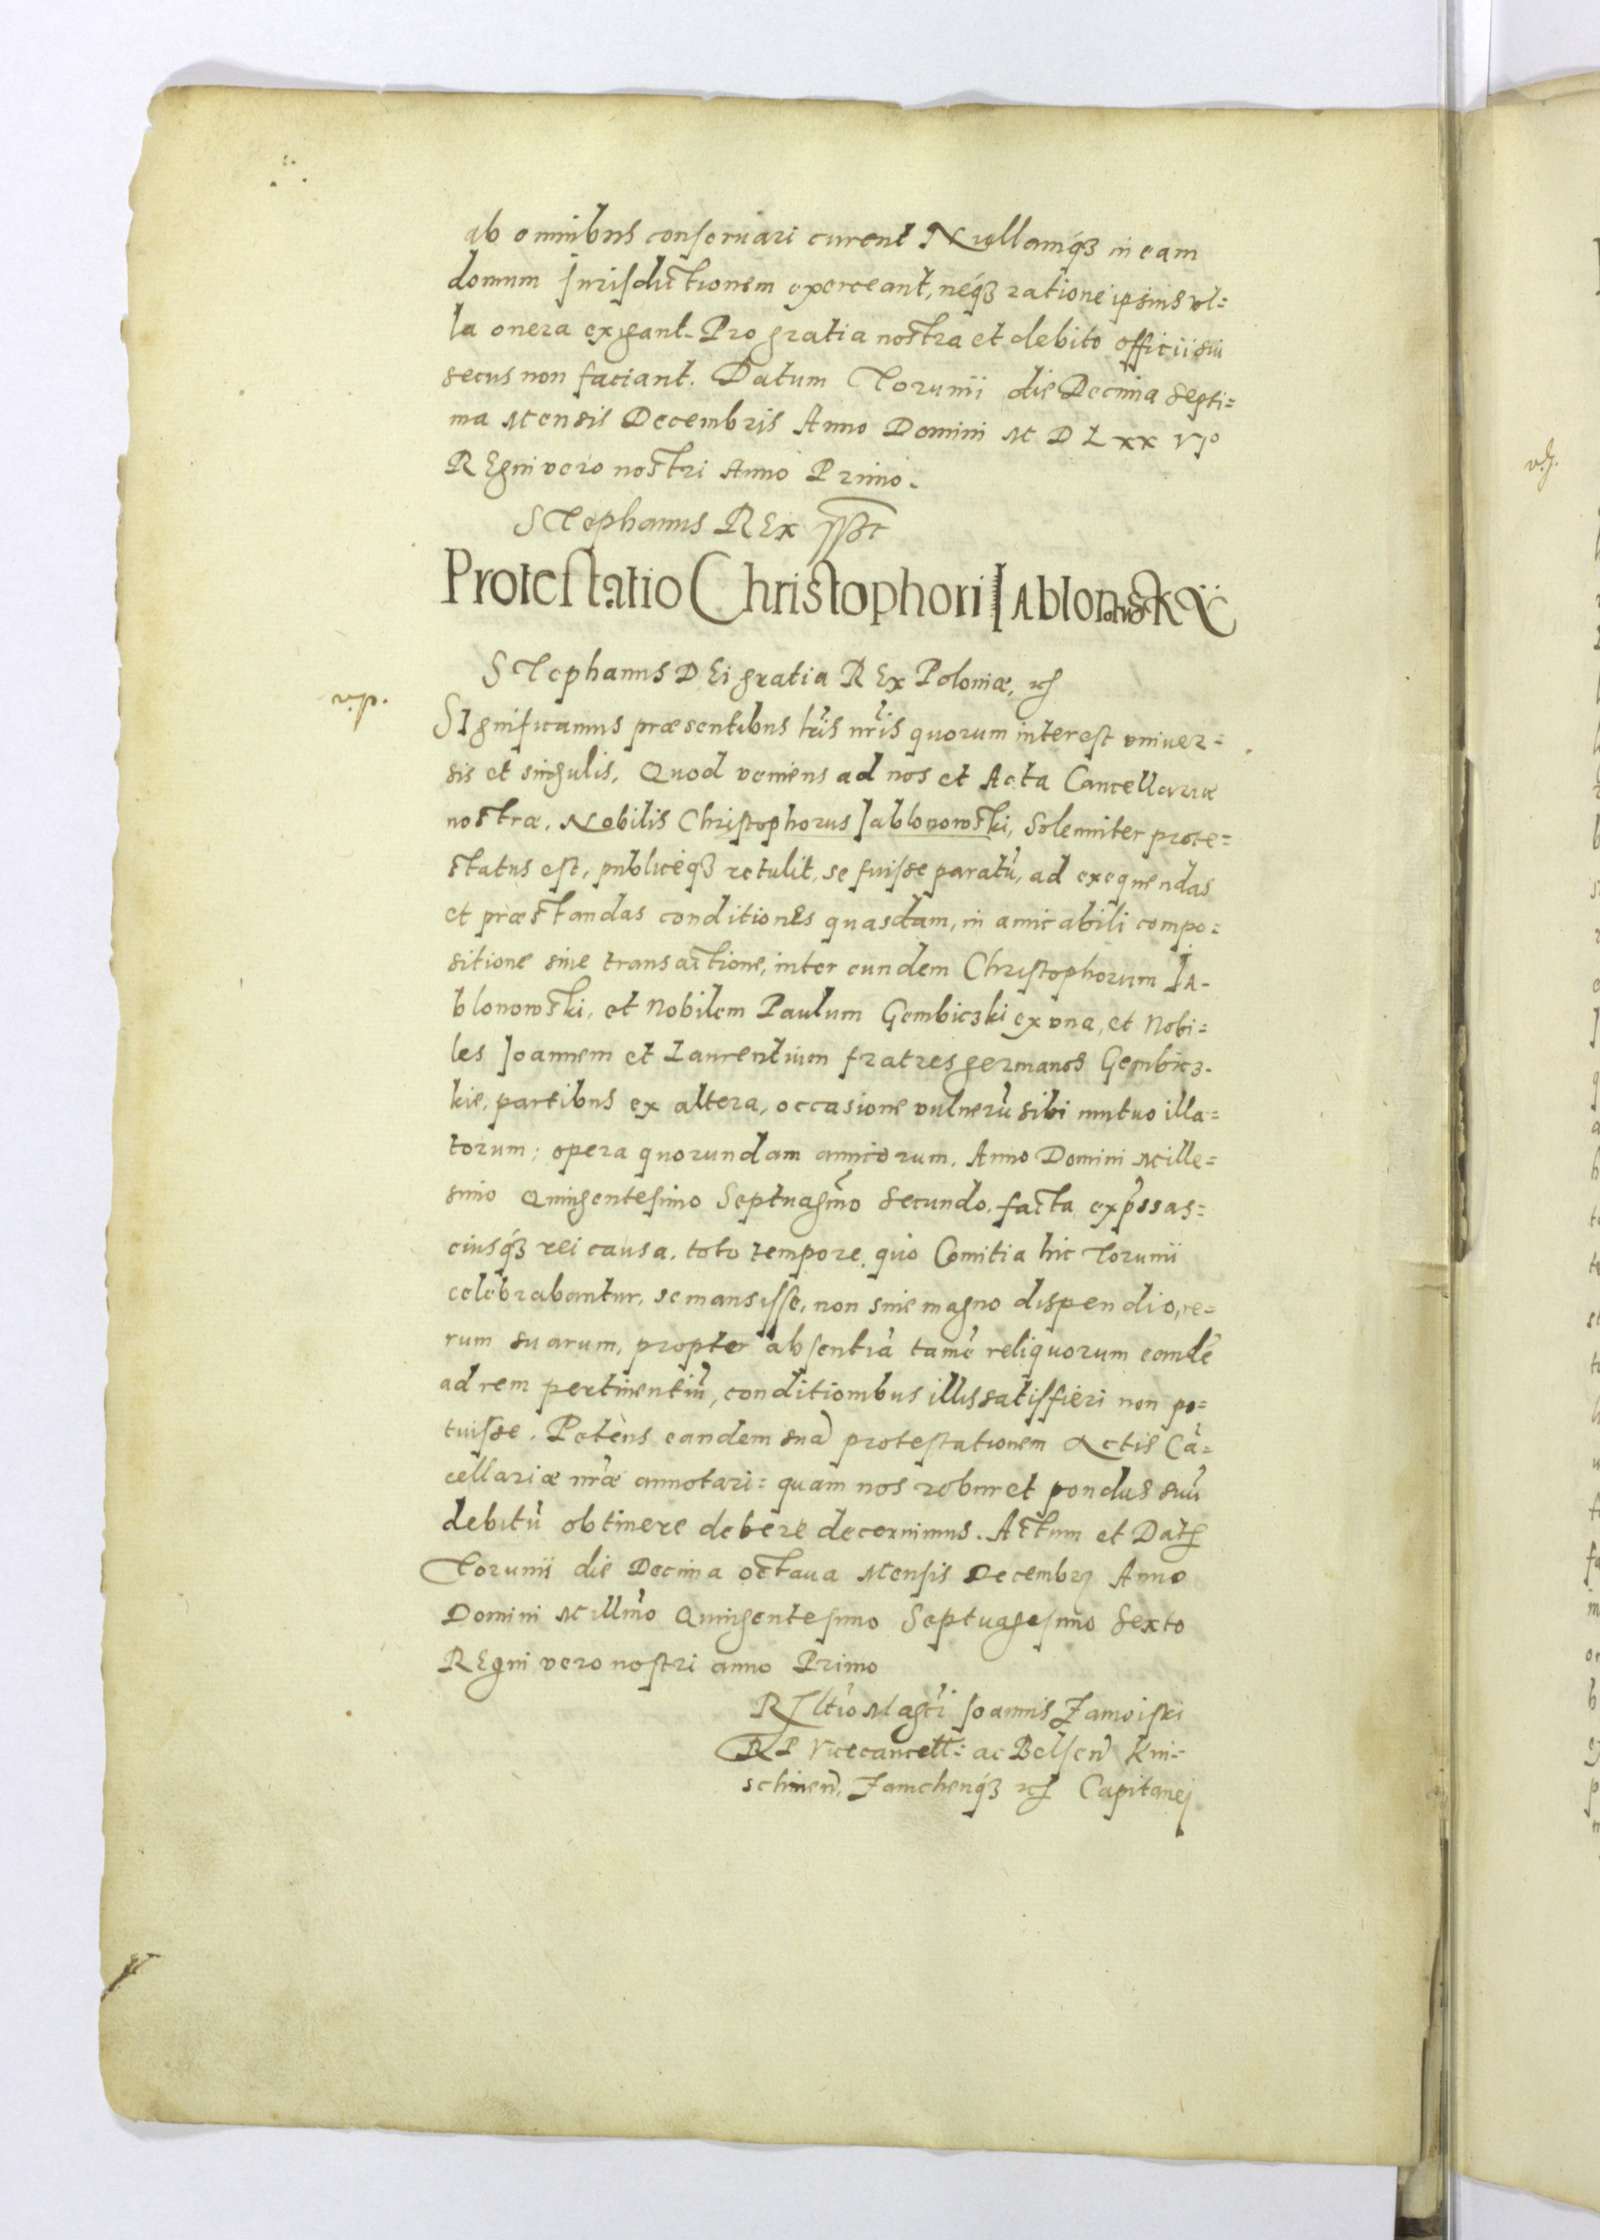 ab omnibus conseruari curent Nullamq́ꝫ in eam
domum Jurisdictionem exerceant, néq́ꝫ ratione ipsius vl=
la onera exigant. Pro gratia nostra et debito officii sui
secus non faciant. Datum Torunii die Decima Septi=
ma Mensis Decembris Anno Domini M D L xx VIº
REgni vero nostri Anno Primo.
STephanus REx
Protestatio Christophori Jablonowskÿ
STephanus DEi gratia REx Poloniæ,
v.p.
SIgnificamus præsentibus lr̃is nr̃is quorum interest vniuer=
sis et singulis, Quod veniens ad nos et Acta Cancellariæ
nostræ. Nobilis Christophorus Jablonowski, Solenniter prote=
status est, publicéq́ꝫ retulit, se fuisse paratũ, ad exequendas
et præstandas conditionEs quasdam, in amicabili compo=
sitione siue transactione, inter eundem Christophorum JA-
blonowski, et Nobilem Paulum Gembiczki ex vna, et Nobi=
les Joannem et Laurentium fratres germanos Gembicz-
kie, partibus ex altera, occasione vulnerũ sibi mutuo illa=
torum; opera quorundam amicorum, Anno Domini Mille=
simo Quingentesimo Septuagm̃o Secundo. facta exp̃ssas=
eiusq́ꝫ rei causa. toto tempore. quo Comitia hic Torunii
celebrabantur, se mansisse, non sine magno dispendio, re=
rum suarum, propter absentiã tamẽ reliquorum eandẽ
ad rem pertinentiũ, conditionibus illis satisfieri non po=
tuisse. Petens eandem suã protestationem Actis Cã=
cellariæ nr̃æ annotari= quam nos robur et pondus suũ
debitũ obtinere debere decernimus. Actum et Datꝫ
Torunii die Decima octaua Mensis Decembrꝫ Anno
Domini Millm̃o Quingentesimo Septuagesimo Sexto
REgni vero nostri anno Primo
Rͦ Joannis Zamoiski
RP Vicecancell: ac Belsen̄ Kni=
schinen̄, Zamchenq́ꝫ Capitanej